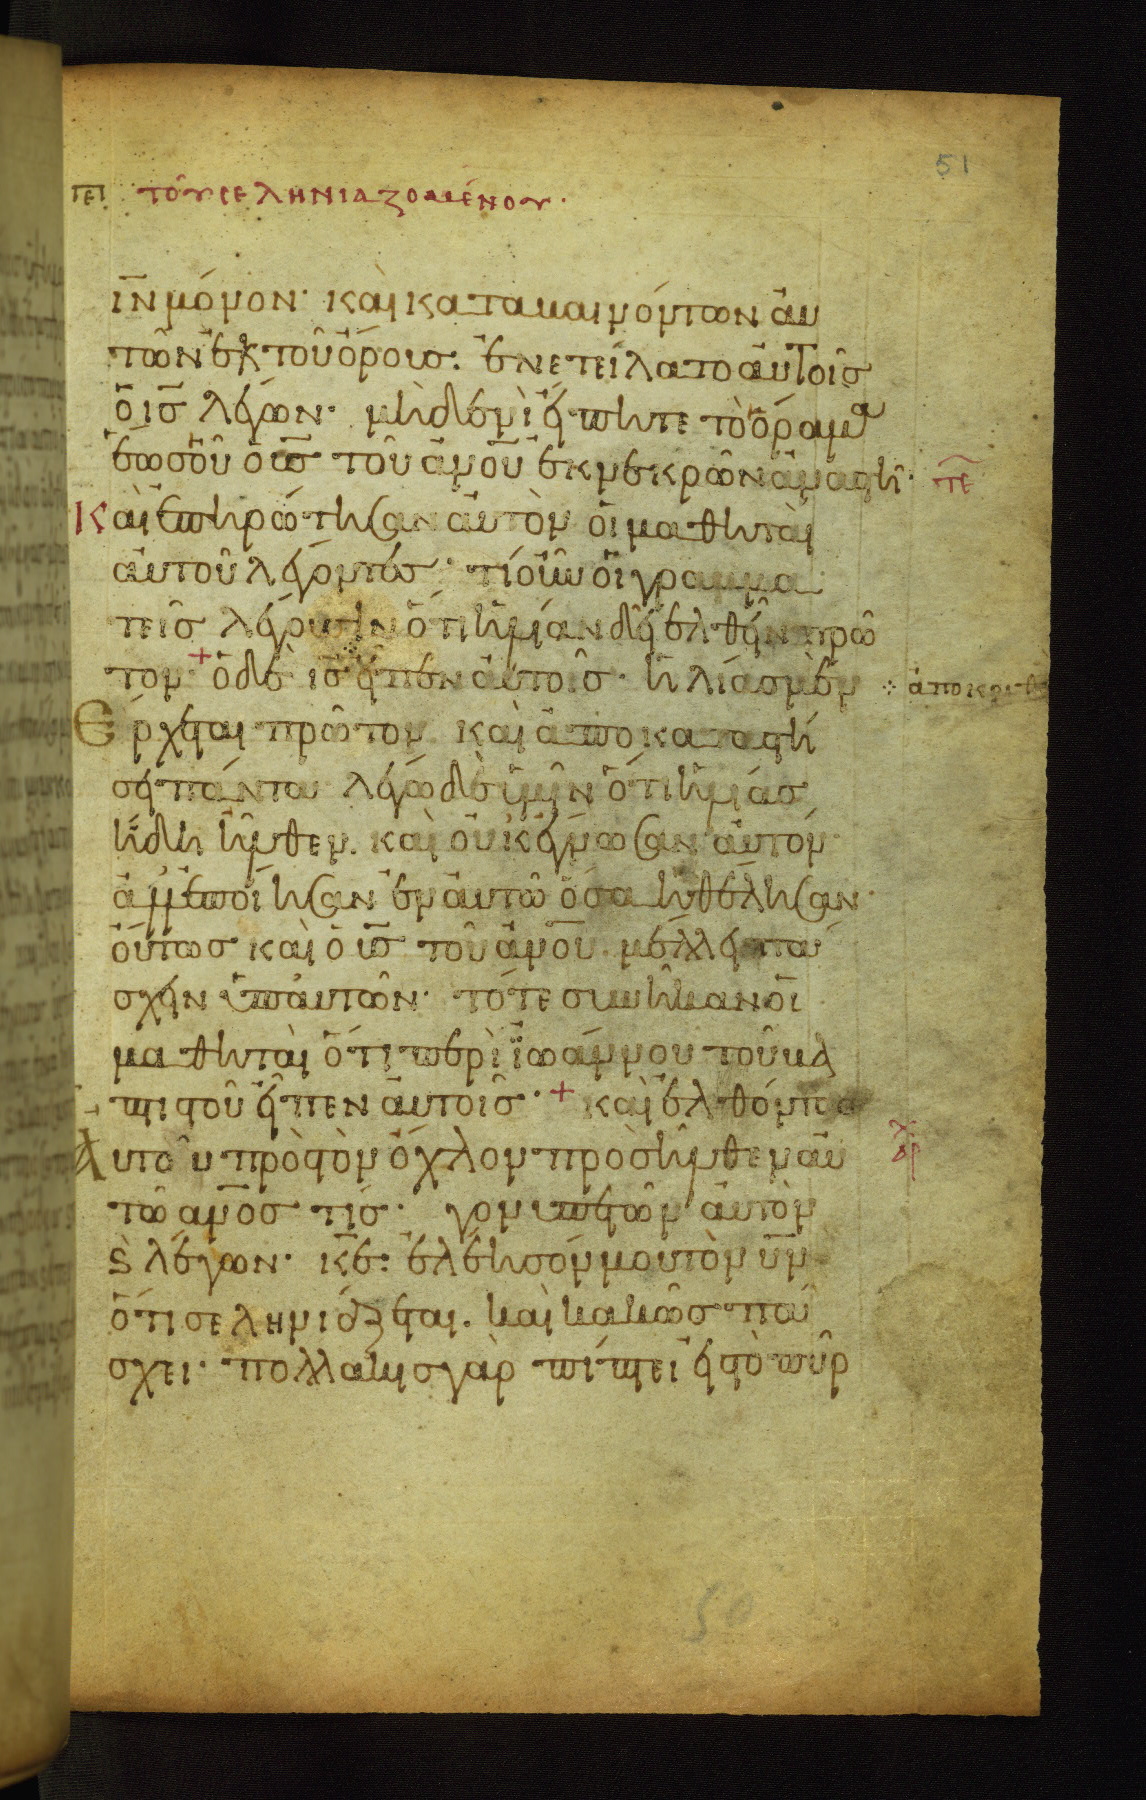 πε τοῦ σεληνιαζομένου·
51
ιν̅ μόνον· καὶ καταβαινόντων αὐ
τῶν ἐκ τοῦ ὄρους· ἐνετείλατο αὐτοῖς
ὁ ις̅ λέγων· μηδενὶ εἴπητε τὸ ὅραμα
ἕως οὗ ὁ υς̅ τοῦ ανου̅ ἐκ νεκρῶν ἀναστῆ· τε̅
Καὶ ἐπηρώτησαν αὐτὸν οἱ μαθηταὶ
αὐτοῦ λέγοντες· τί οὖν οἱ γραμμα
τεῖς λέγουσιν ὅτι ἠλίαν δεῖ ἐλθεῖν πρῶ
τον· + ὁ δὲ ις̅ εἶπεν αὐτοῖς· ἠλίας μὲν ⁘ ἀποκριθ
Ἔρχεται πρῶτον καὶ ἀποκαταστή
σει πάντα λέγω δὲ ὑμῖν ὅτι ἠλίας
ἤδη ἦλθεν. καὶ οὐκ ἔγνωσαν αὐτόν
ἀλλ᾽ ἐποίησαν ἐν αὐτῶ ὅσα ἠθέλησαν·
οὕτως καὶ ὁ υς̅ τοῦ ανου̅ μέλλει πά
σχειν ὑπ᾽ αὐτῶν· τότε συνῆκαν οἱ
μαθηταὶ ὅτι περὶ ἰωάννου τοῦ βα
πτιστοῦ εἶπεν αὐτοῖς· + καὶ
Αὐτοῦ πρὸς τὸν ὄχλον προσῆλθεν αὐ
τῶ ανος̅ τίς· γονυπετῶν αὐτὸν
ϗ λέγων· κε̅· ἐλέησόν μου τὸν υν̅
ὅτι σεληνιάζεται· καὶ κακῶς πά
σχει· πολλάκις γὰρ πίπτει εἰς τὸ πῦρ
50